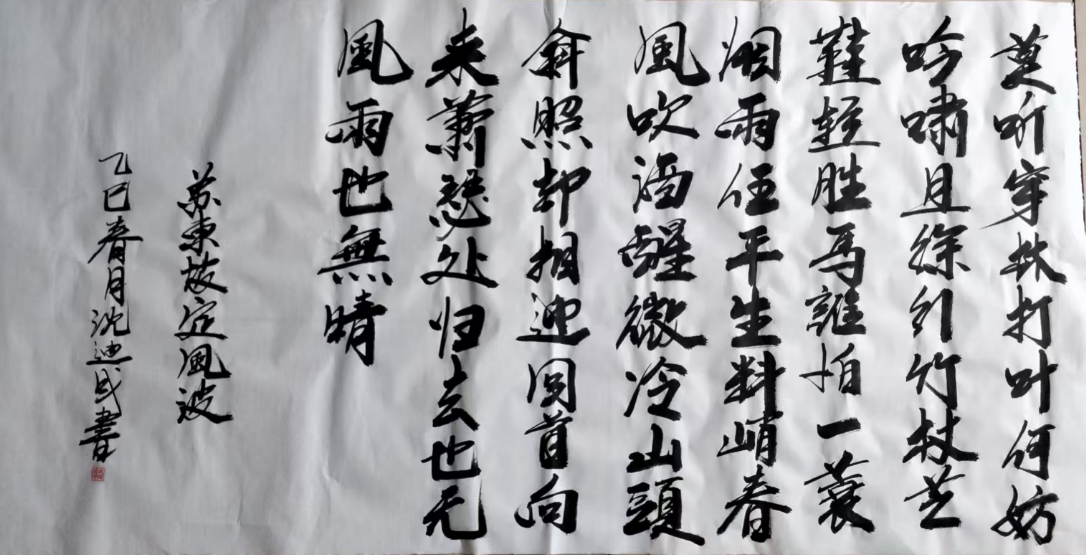 莫听穿林打叶何妨
吟啸且徐行竹杖芒
鞋轻胜马誰怕一蓑
烟雨任平生料峭春
風吹酒醒微冷山頭
斜照却相迎回首向
来萧瑟处归去也无
風雨也無晴
苏東坡定風波
乙巳春月沈迪民書